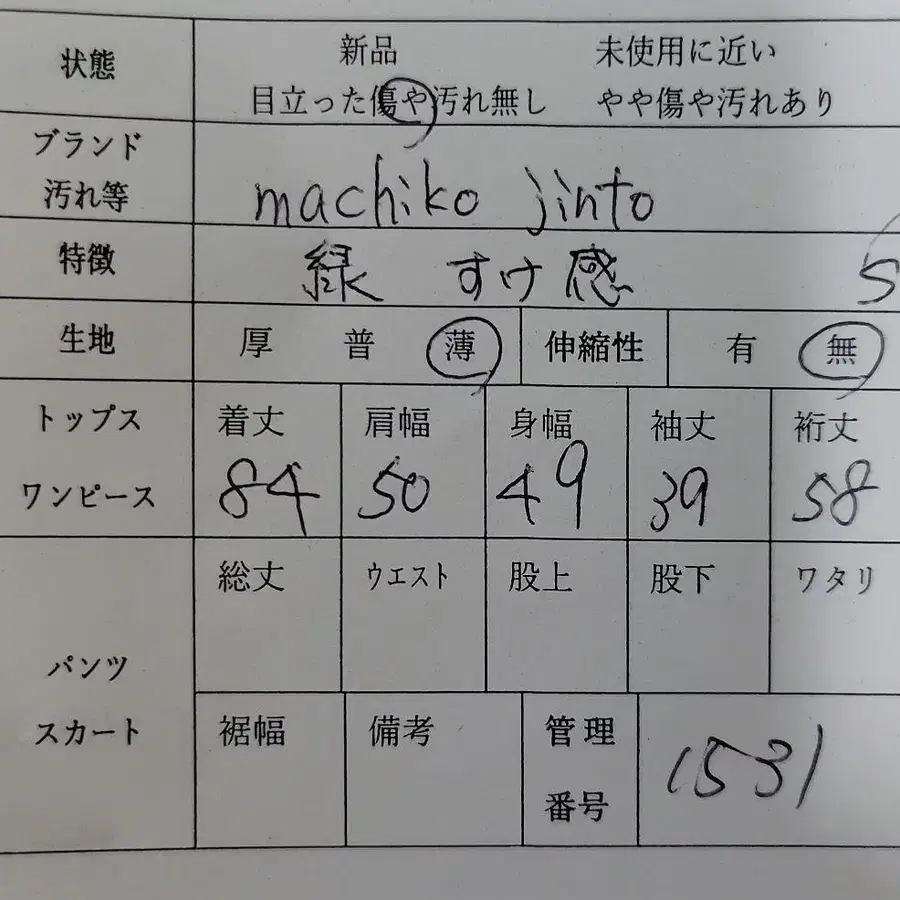 状態 新品 未使用に近い
目立った傷や汚れ無し やや傷や汚れあり
ブランド
汚れ等 machiko jinto
特徴 緑 すけ感 S
生地 厚 普 薄 伸縮性 有 無
トップス 着丈 肩幅 身幅 袖丈 裄丈
ワンピース 84 50 49 39 58
総丈 ウエスト 股上 股下 ワタリ
パンツ
スカート 裾幅 備考 管理
番号 1531